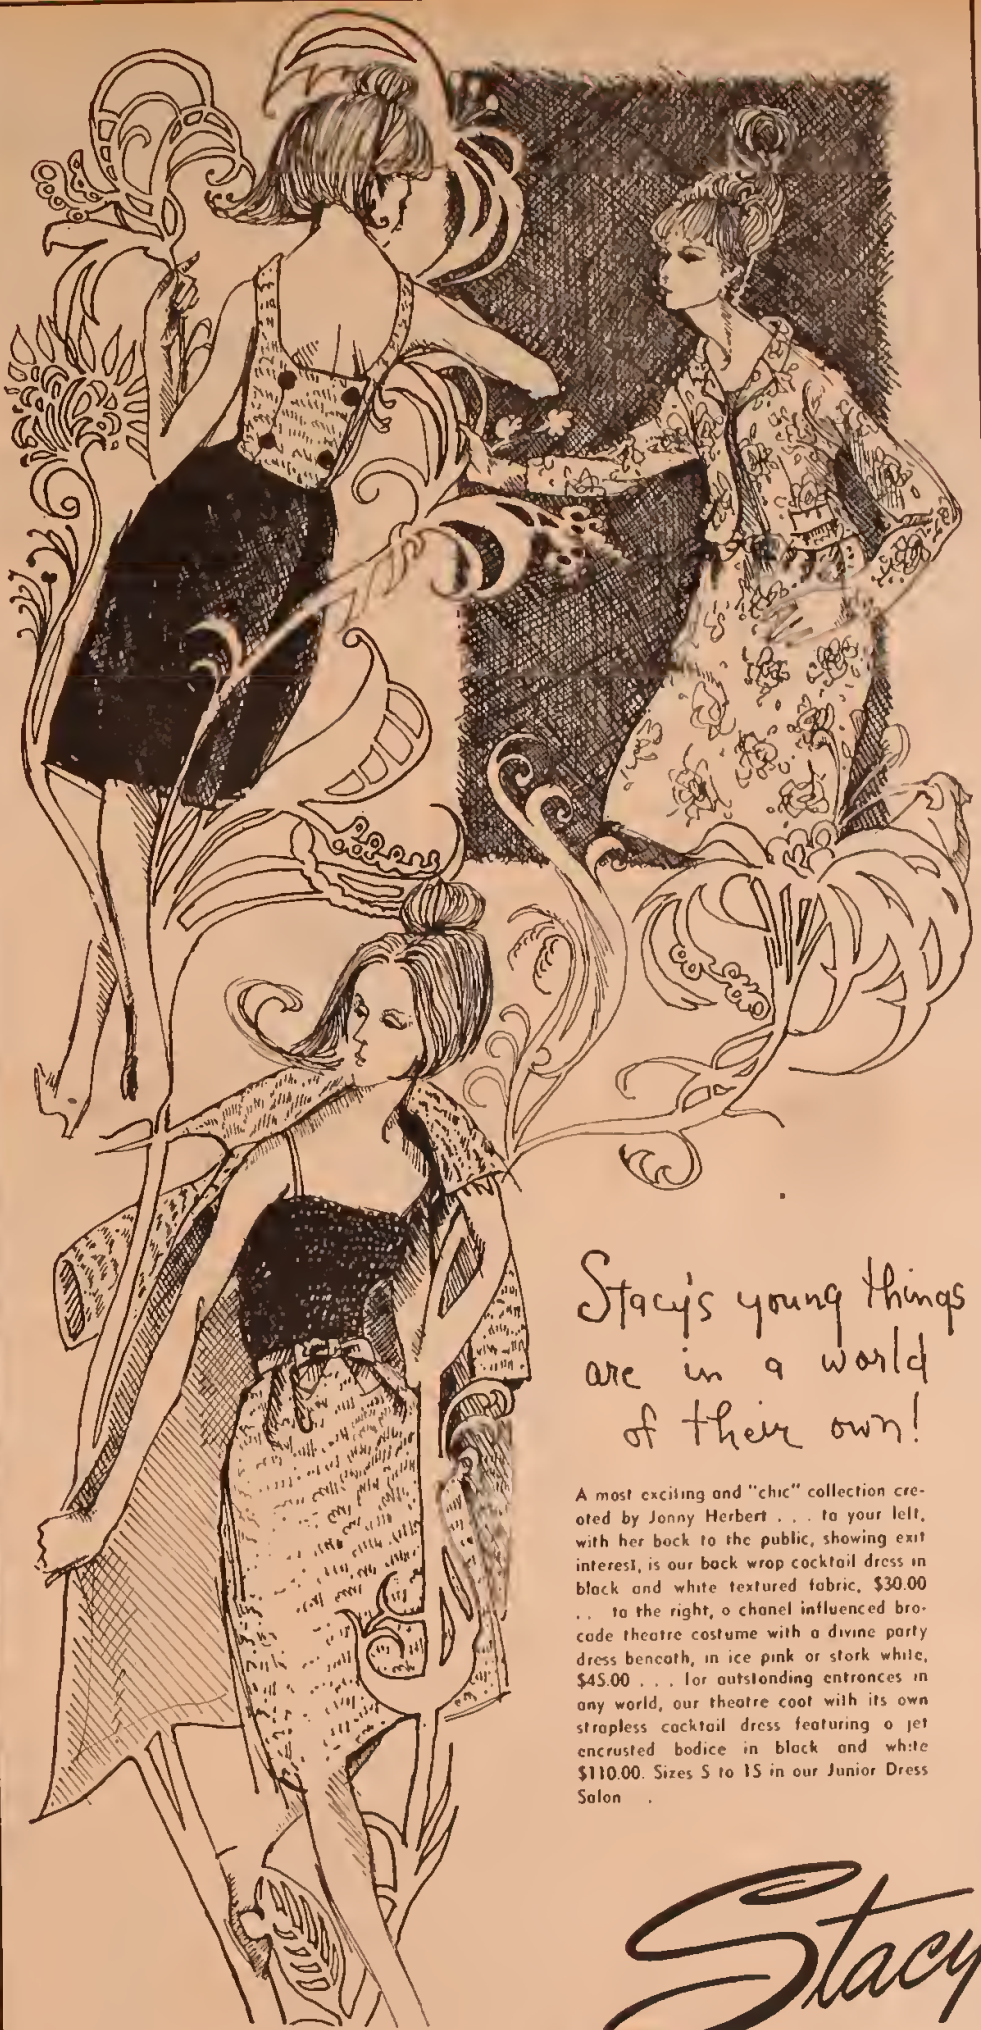 Stacy's young things
are in a world
of their own!
A most exciting and "chic" collection cre-
ated by Jonny Herbert . . . to your left,
with her back to the public, showing exit
interest, is our back wrap cocktail dress in
black and white textured fabric, $30.00
. . to the right, a chanel influenced bro-
cade theatre costume with a divine party
dress beneath, in ice pink or stark white,
$45.00 . . . for outstanding entrances in
any world, our theatre coat with its own
strapless cocktail dress featuring a jet
encrusted bodice in black and white
$110.00. Sizes 5 to 15 in our Junior Dress
Salon .
Stacy